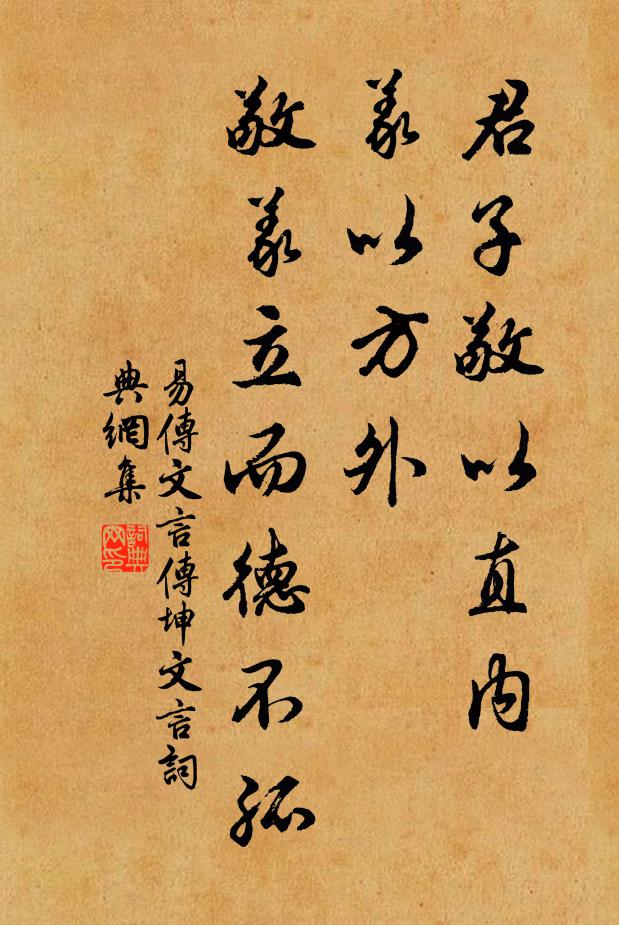 君子敬以直内
義以方外
敬義立而德不孤
易傳文言傳坤文言詞
典網集
詞典
网印